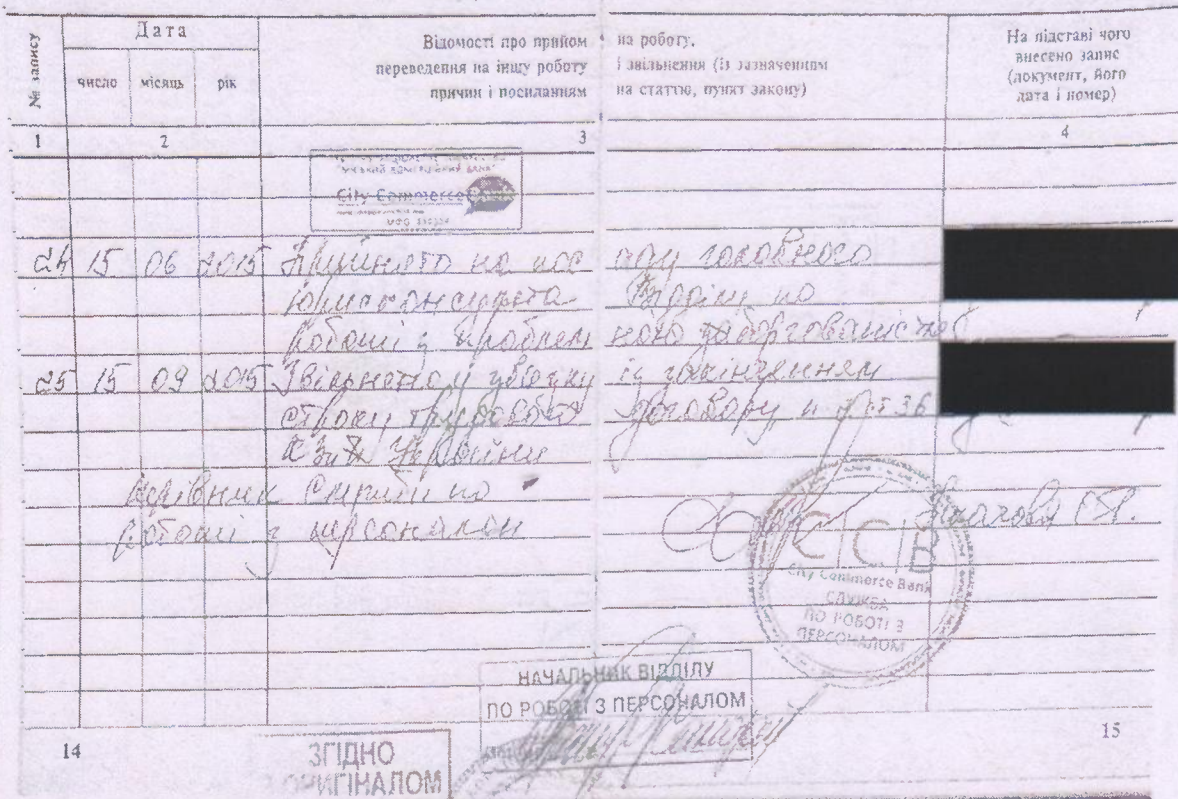 № запису
Дата
Відомості про прийом на роботу,
переведення на іншу роботу і звільнення (із зазначенням
причин і посиланням на статтю, пункт закону)
На підставі чого
внесено запис
(документ, його
дата і номер)
число місяць рік
1 2 3 4
City Commerce
24 15 06 2015 Прийнято на посаду головного
юрисконсульта Відділу по
роботі з проблемною заборгованістю
25 15 09 2015 Звільнено у зв'язку із закінченням
строку трудового договору п. ст 36
КЗпП України
Керівник Служби по
роботі з персоналом
ССВ
City Commerce Bank
СЛУЖБА
ПО РОБОТІ З
ПЕРСОНАЛОМ
НАЧАЛЬНИК ВІДДІЛУ
ПО РОБОТІ З ПЕРСОНАЛОМ
14
ЗГІДНО
З ОРИГІНАЛОМ
15